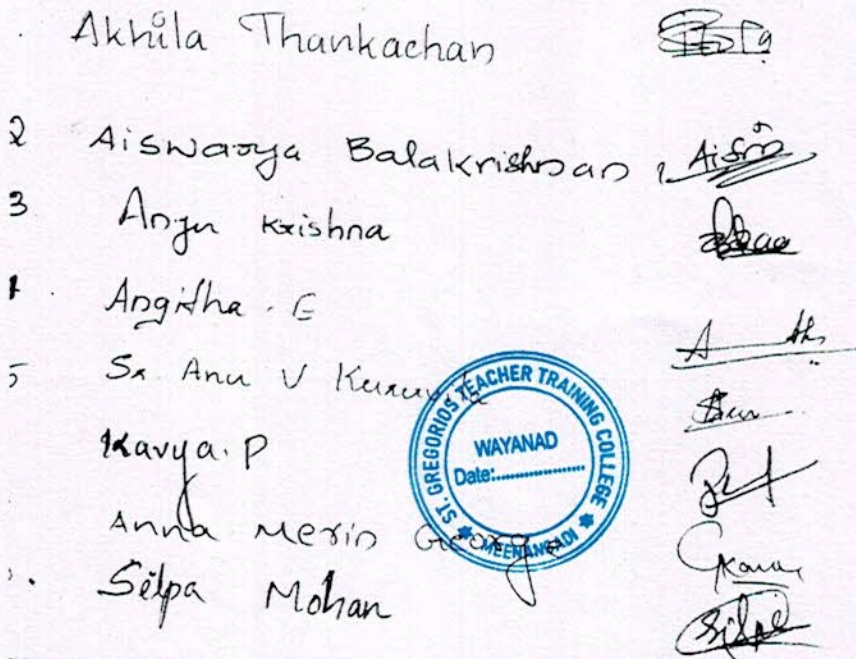 Akhila Thankachan
2 Aiswarya Balakrishnan
3 Anju Krishna
Angitha. E
5 Sr. Anu V Kuruvila
Kavya. P
Anna Merin George
Silpa Mohan
ST. GREGORIOS TEACHER TRAINING COLLEGE
WAYANAD
Date:....................
MEENANGADI